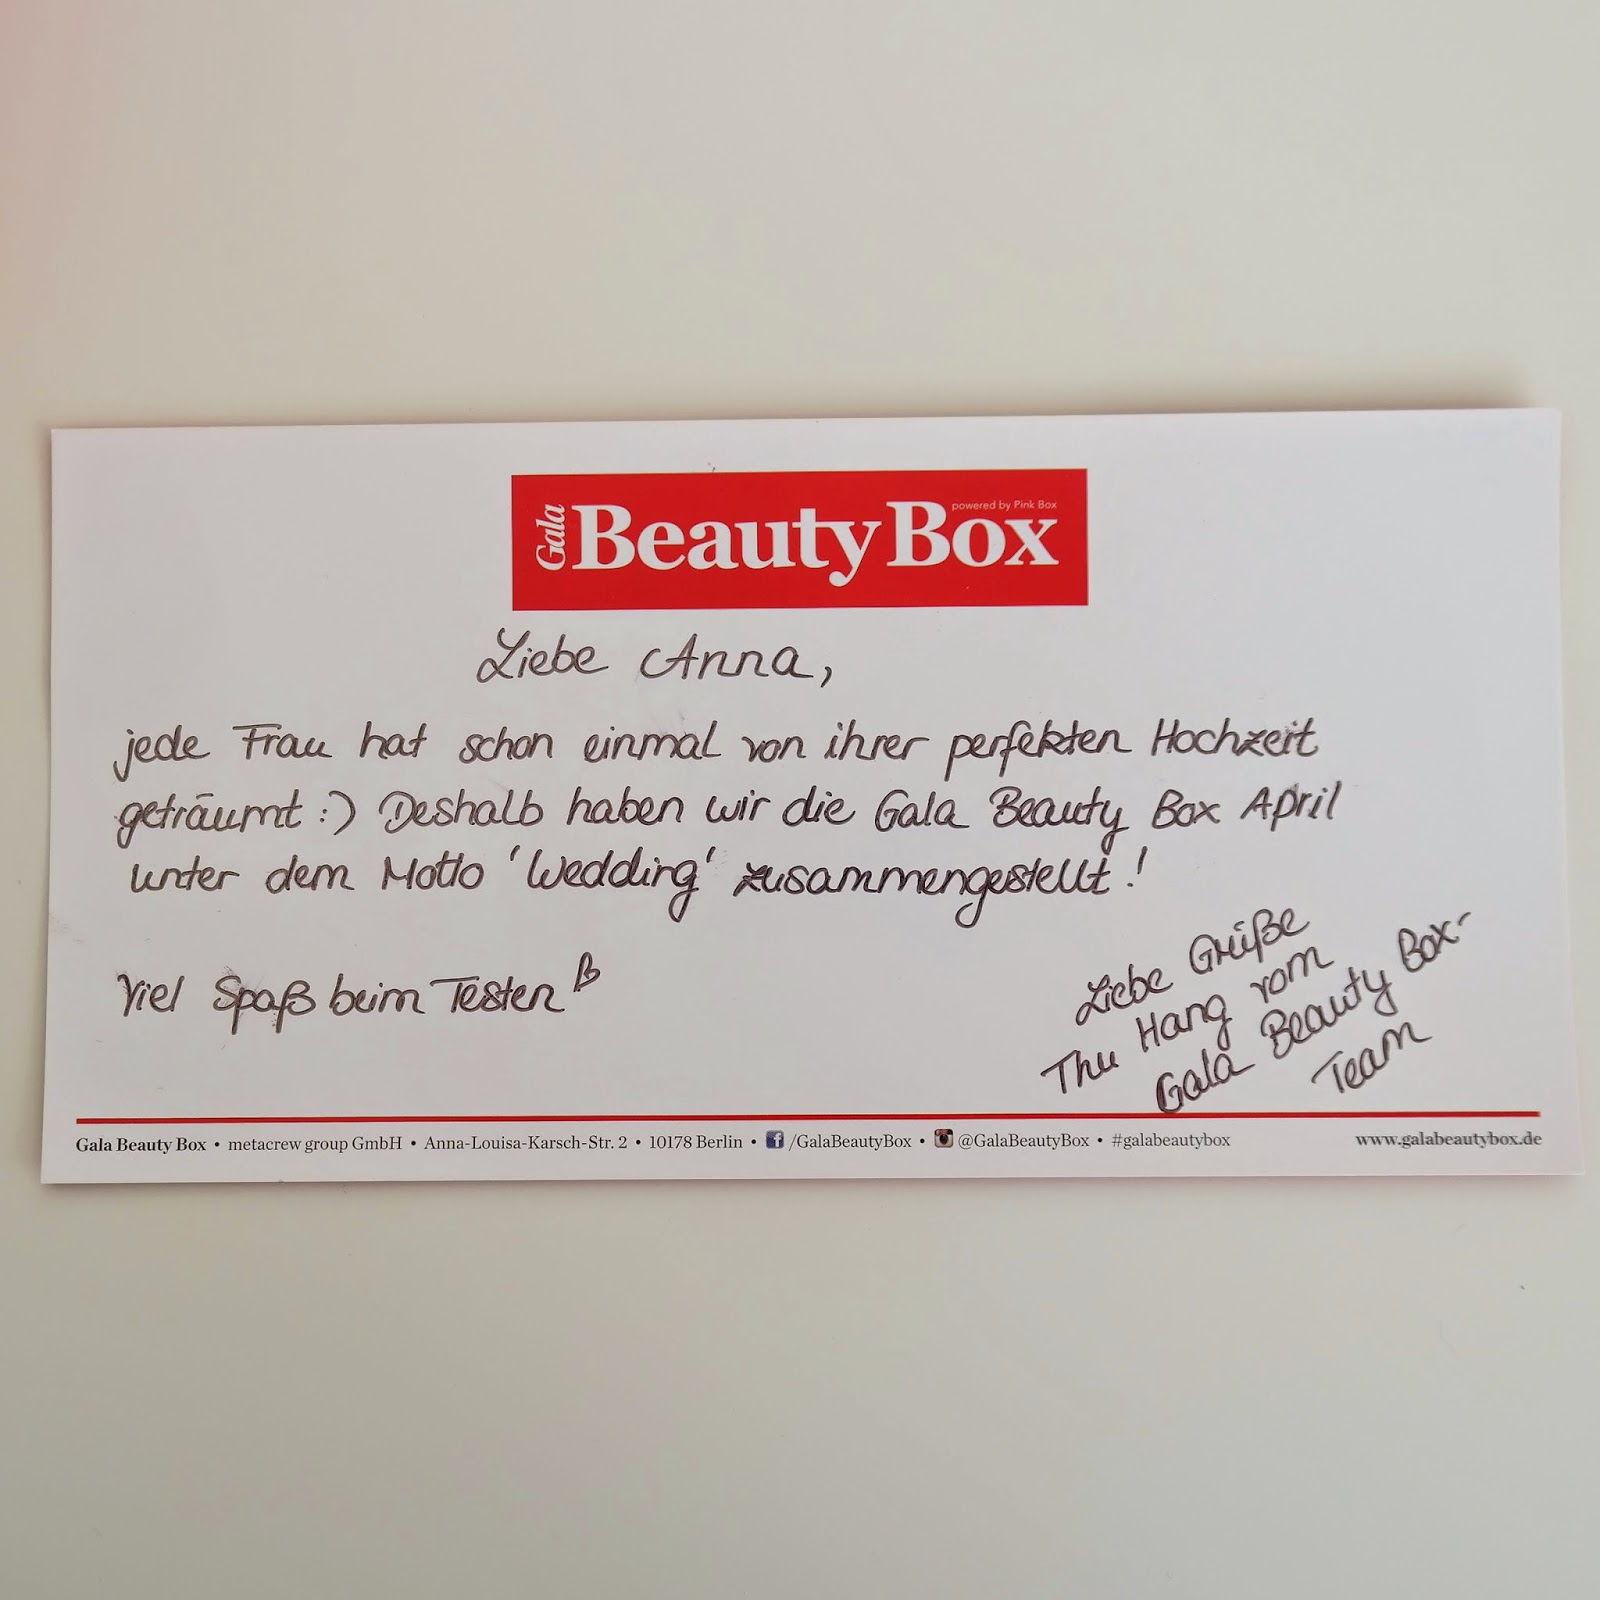 Gala BeautyBox powered by Pink Box
Liebe Anna,
jede Frau hat schon einmal von ihrer perfekten Hochzeit
geträumt :) Deshalb haben wir die Gala Beauty Box April
unter dem Motto 'Wedding' zusammengestellt!
Viel Spaß beim Testen
Liebe Grüße
Thu Hang vom
Gala Beauty Box-
Team
Gala Beauty Box • metacrew group GmbH • Anna-Louisa-Karsch-Str. 2 • 10178 Berlin • /GalaBeautyBox • @GalaBeautyBox • #galabeautybox www.galabeautybox.de